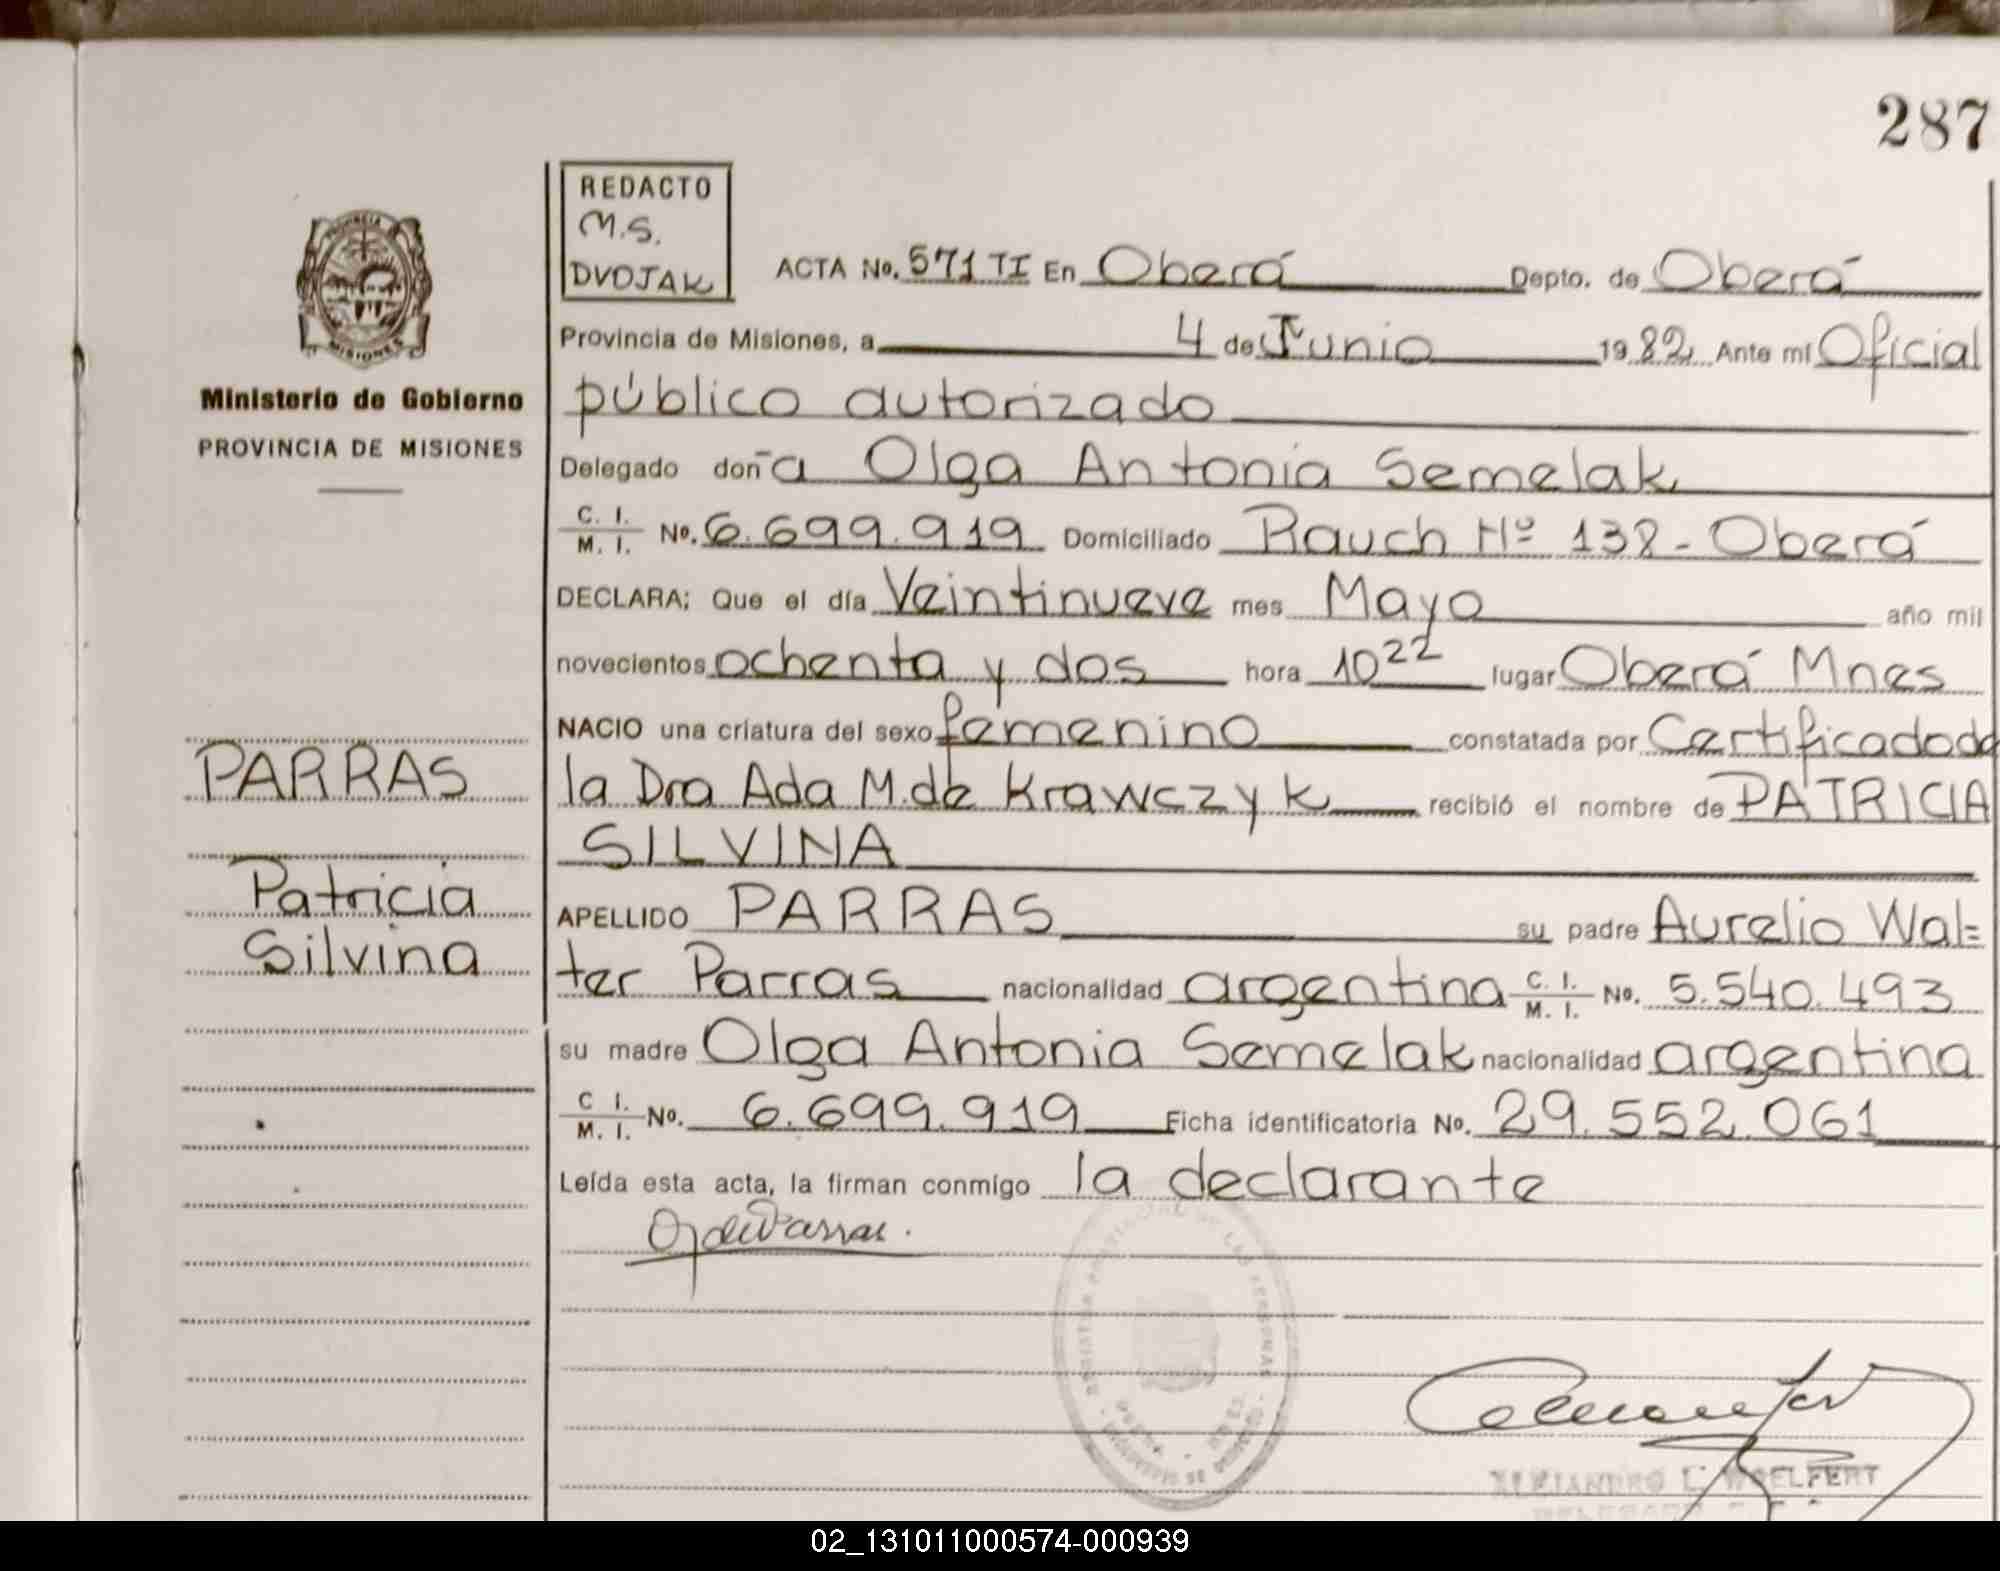 287
REDACTO
M.S.
DVOJAK
ACTA No. 571 TI En Oberá Depto. de Oberá
Provincia de Misiones, a 4 de Junio 1982 Ante mi Oficial
público autorizado
Delegado doña Olga Antonia Semelak
C. I. M. I. No. 6.699.919 Domiciliado Rauch Nº 138 - Oberá
DECLARA; Que el día Veintinueve mes Mayo año mil
novecientos ochenta y dos hora 10 22 lugar Oberá Mnes
NACIO una criatura del sexo femenino constatada por Certificado de
la Dra Ada M. de Krawczyk recibió el nombre de PATRICIA
SILVINA
APELLIDO PARRAS su padre Aurelio Wal=
ter Parras nacionalidad argentina C. I. M. I. No. 5.540.493
su madre Olga Antonia Semelak nacionalidad argentina
C I. M. I. No. 6.699.919 Ficha identificatoria No. 29.552.061
Leída esta acta, la firman conmigo la declarante
PROVINCIA
MISIONES
Ministerio de Gobierno
PROVINCIA DE MISIONES
PARRAS
Patricia
Silvina
ALEJANDRO L. WOELFERT
02_131011000574-000939